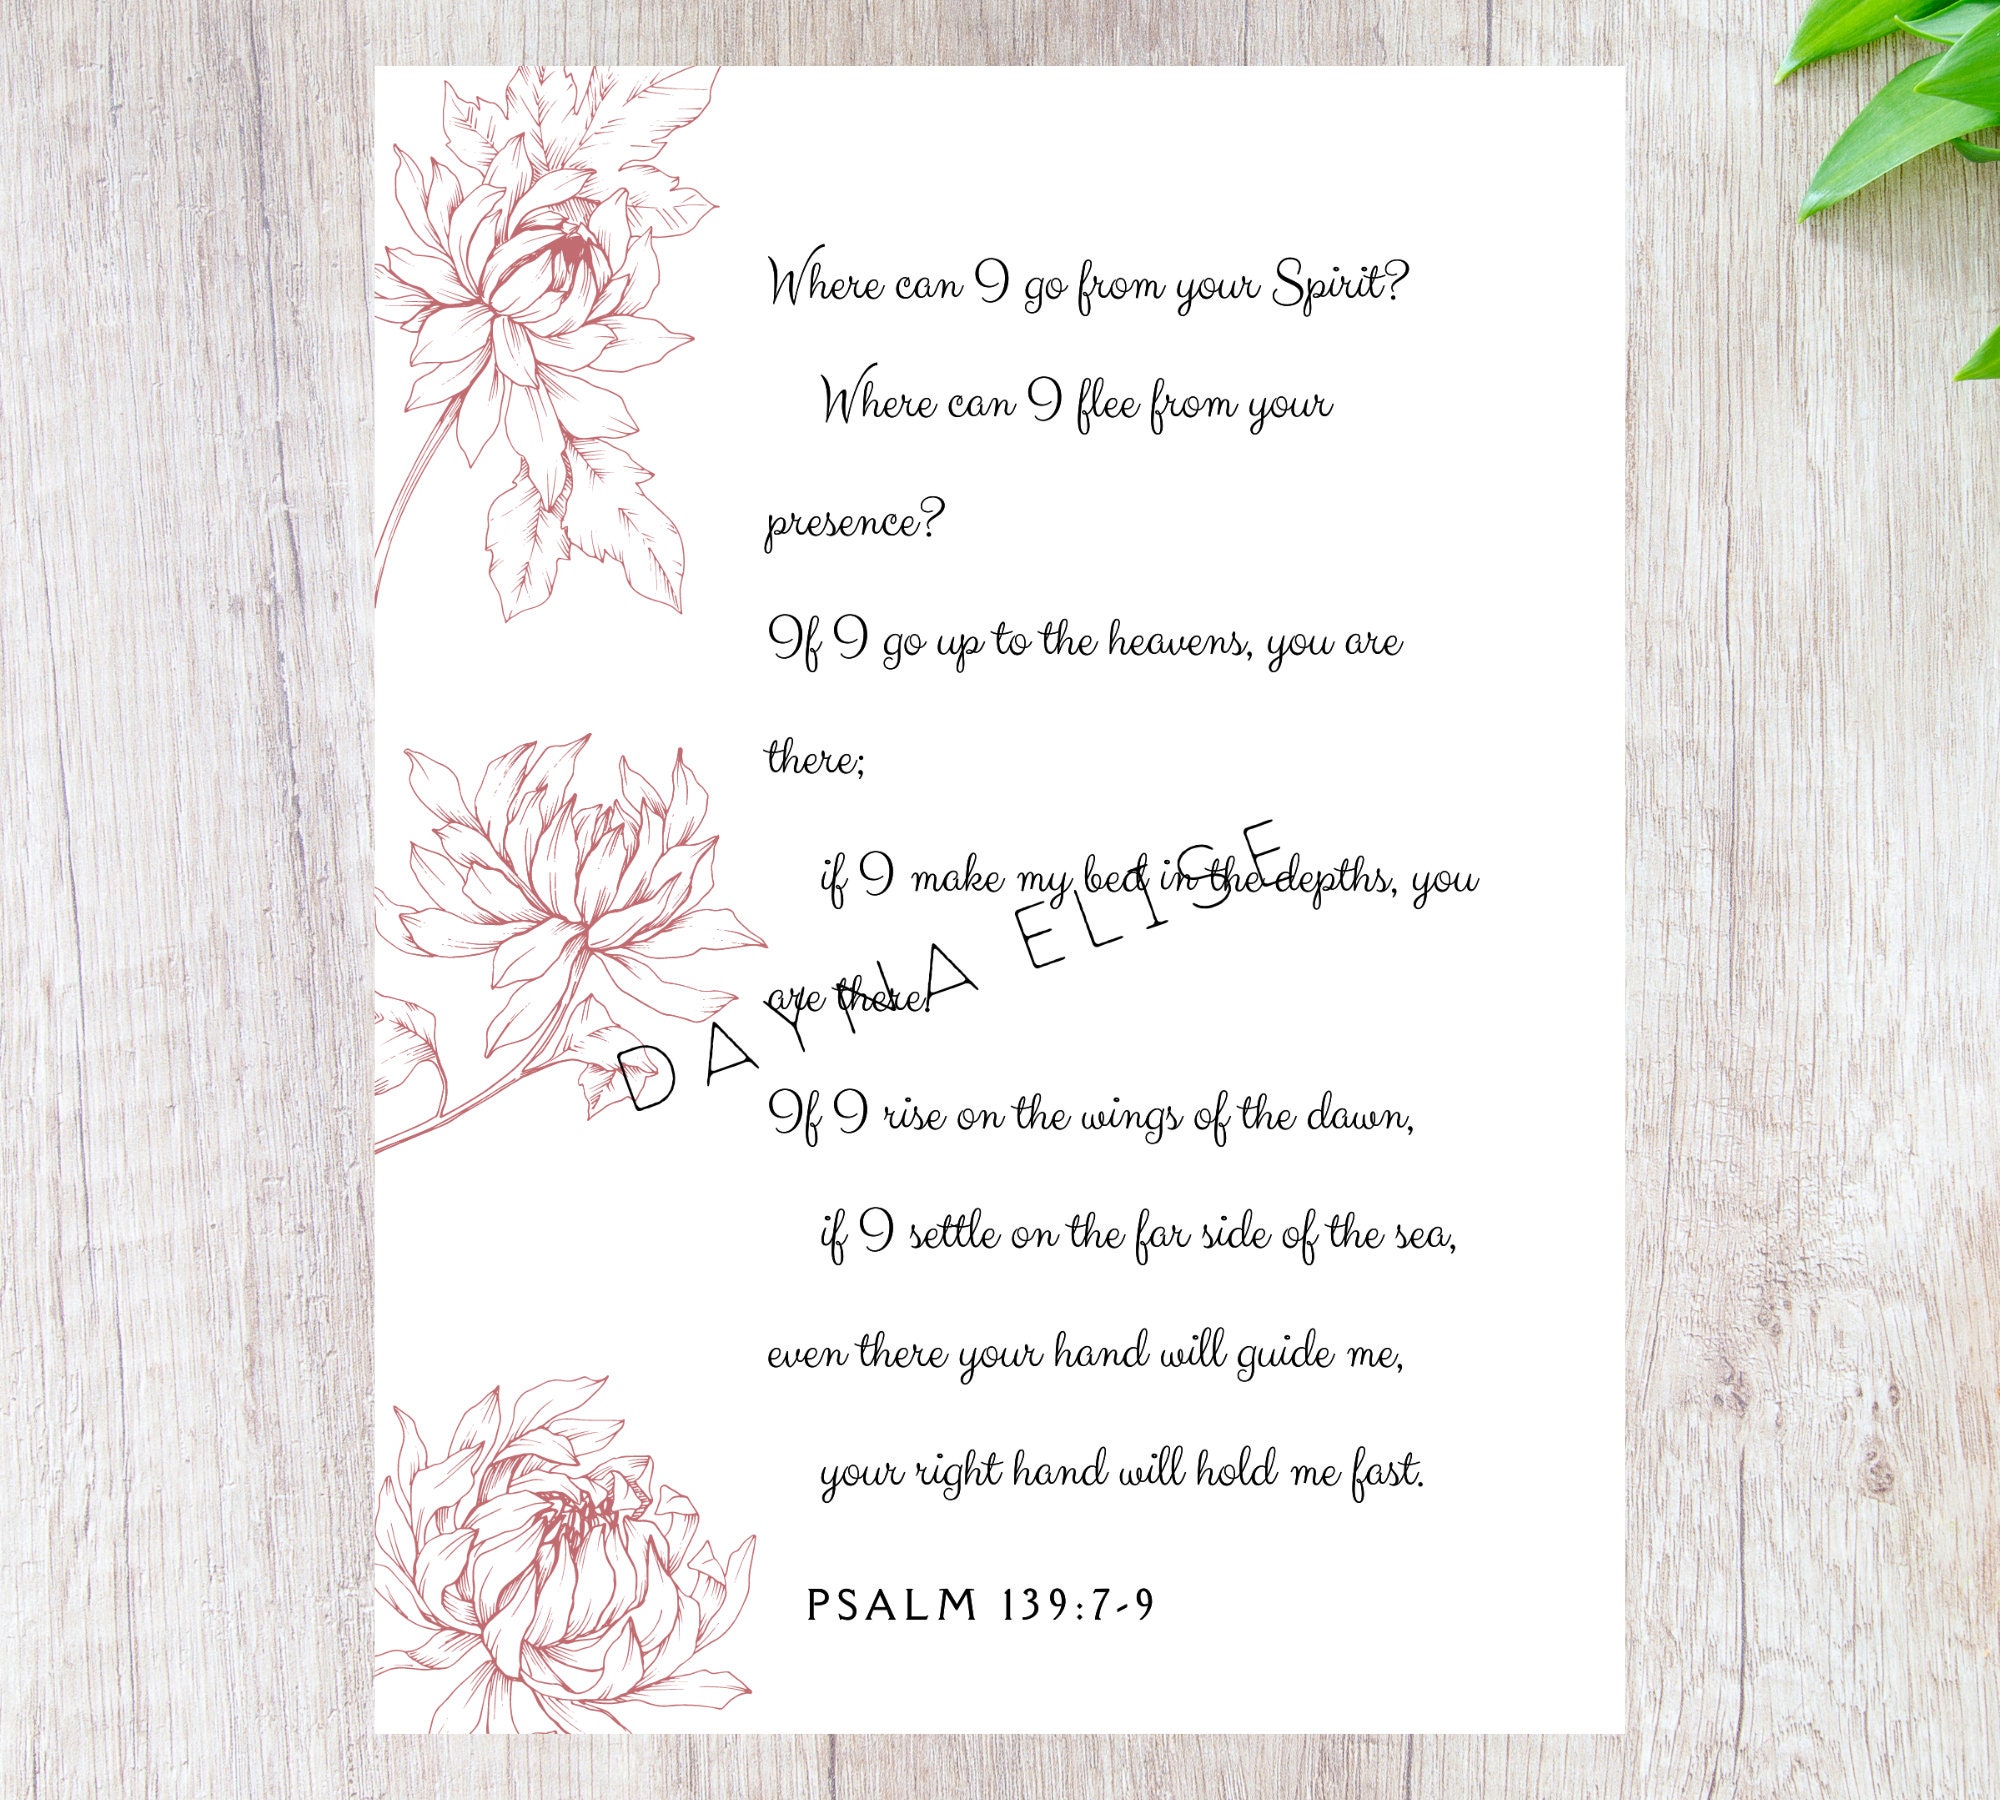 Where can I go from your Spirit?
Where can I flee from your
presence?
If I go up to the heavens, you are
there;
if I make my bed in the depths, you
are there.
DAYNA ELISE
If I rise on the wings of the dawn,
if I settle on the far side of the sea,
even there your hand will guide me,
your right hand will hold me fast.
PSALM 139:7-9